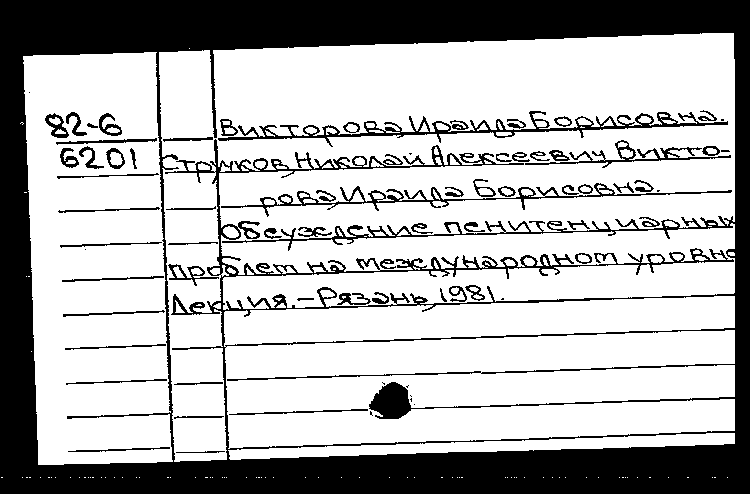 82-6 Викторова, Ираида Борисовна.
6201 Стручков, Николай Алексеевич, Викто-
рова, Ираида Борисовна.
Обсуждение пенитенциарных
проблем на международном уровне
Лекция. – Рязань, 1981.